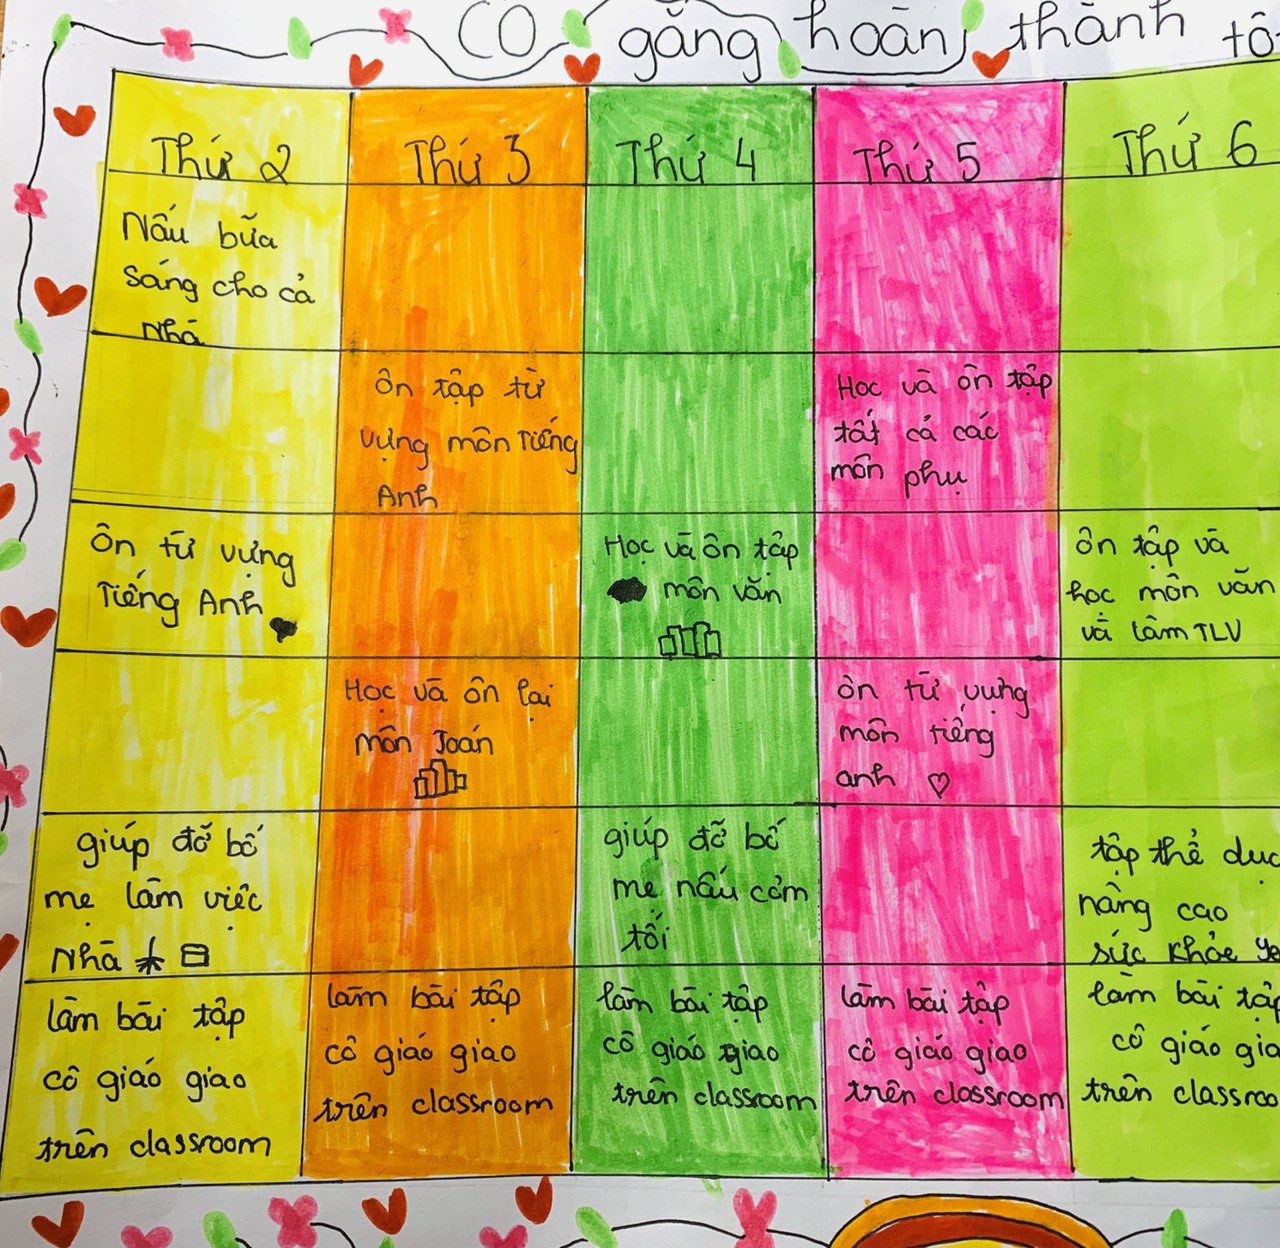 Cố gắng hoàn thành tố
Thứ 2
Thứ 3
Thứ 4
Thứ 5
Thứ 6
Nấu bữa
sáng cho cả
Nhà
ôn tập từ
vựng môn Tiếng
Anh
Học và ôn tập
tất cả các
môn phụ
Ôn từ vựng
Tiếng Anh
Học và ôn tập
môn văn
ôn tập và
học môn văn
và làm TLV
Học và ôn lại
môn Toán
ôn từ vựng
môn tiếng
anh
giúp đỡ bố
mẹ làm việc
Nhà
giúp đỡ bố
mẹ nấu cơm
tối
tập thể dục
nâng cao
sức khỏe
làm bài tập
cô giáo giao
trên classroom
làm bài tập
cô giáo giao
trên classroom
làm bài tập
cô giáo giao
trên classroom
làm bài tập
cô giáo giao
trên classroom
làm bài tập
cô giáo gia
trên classroo